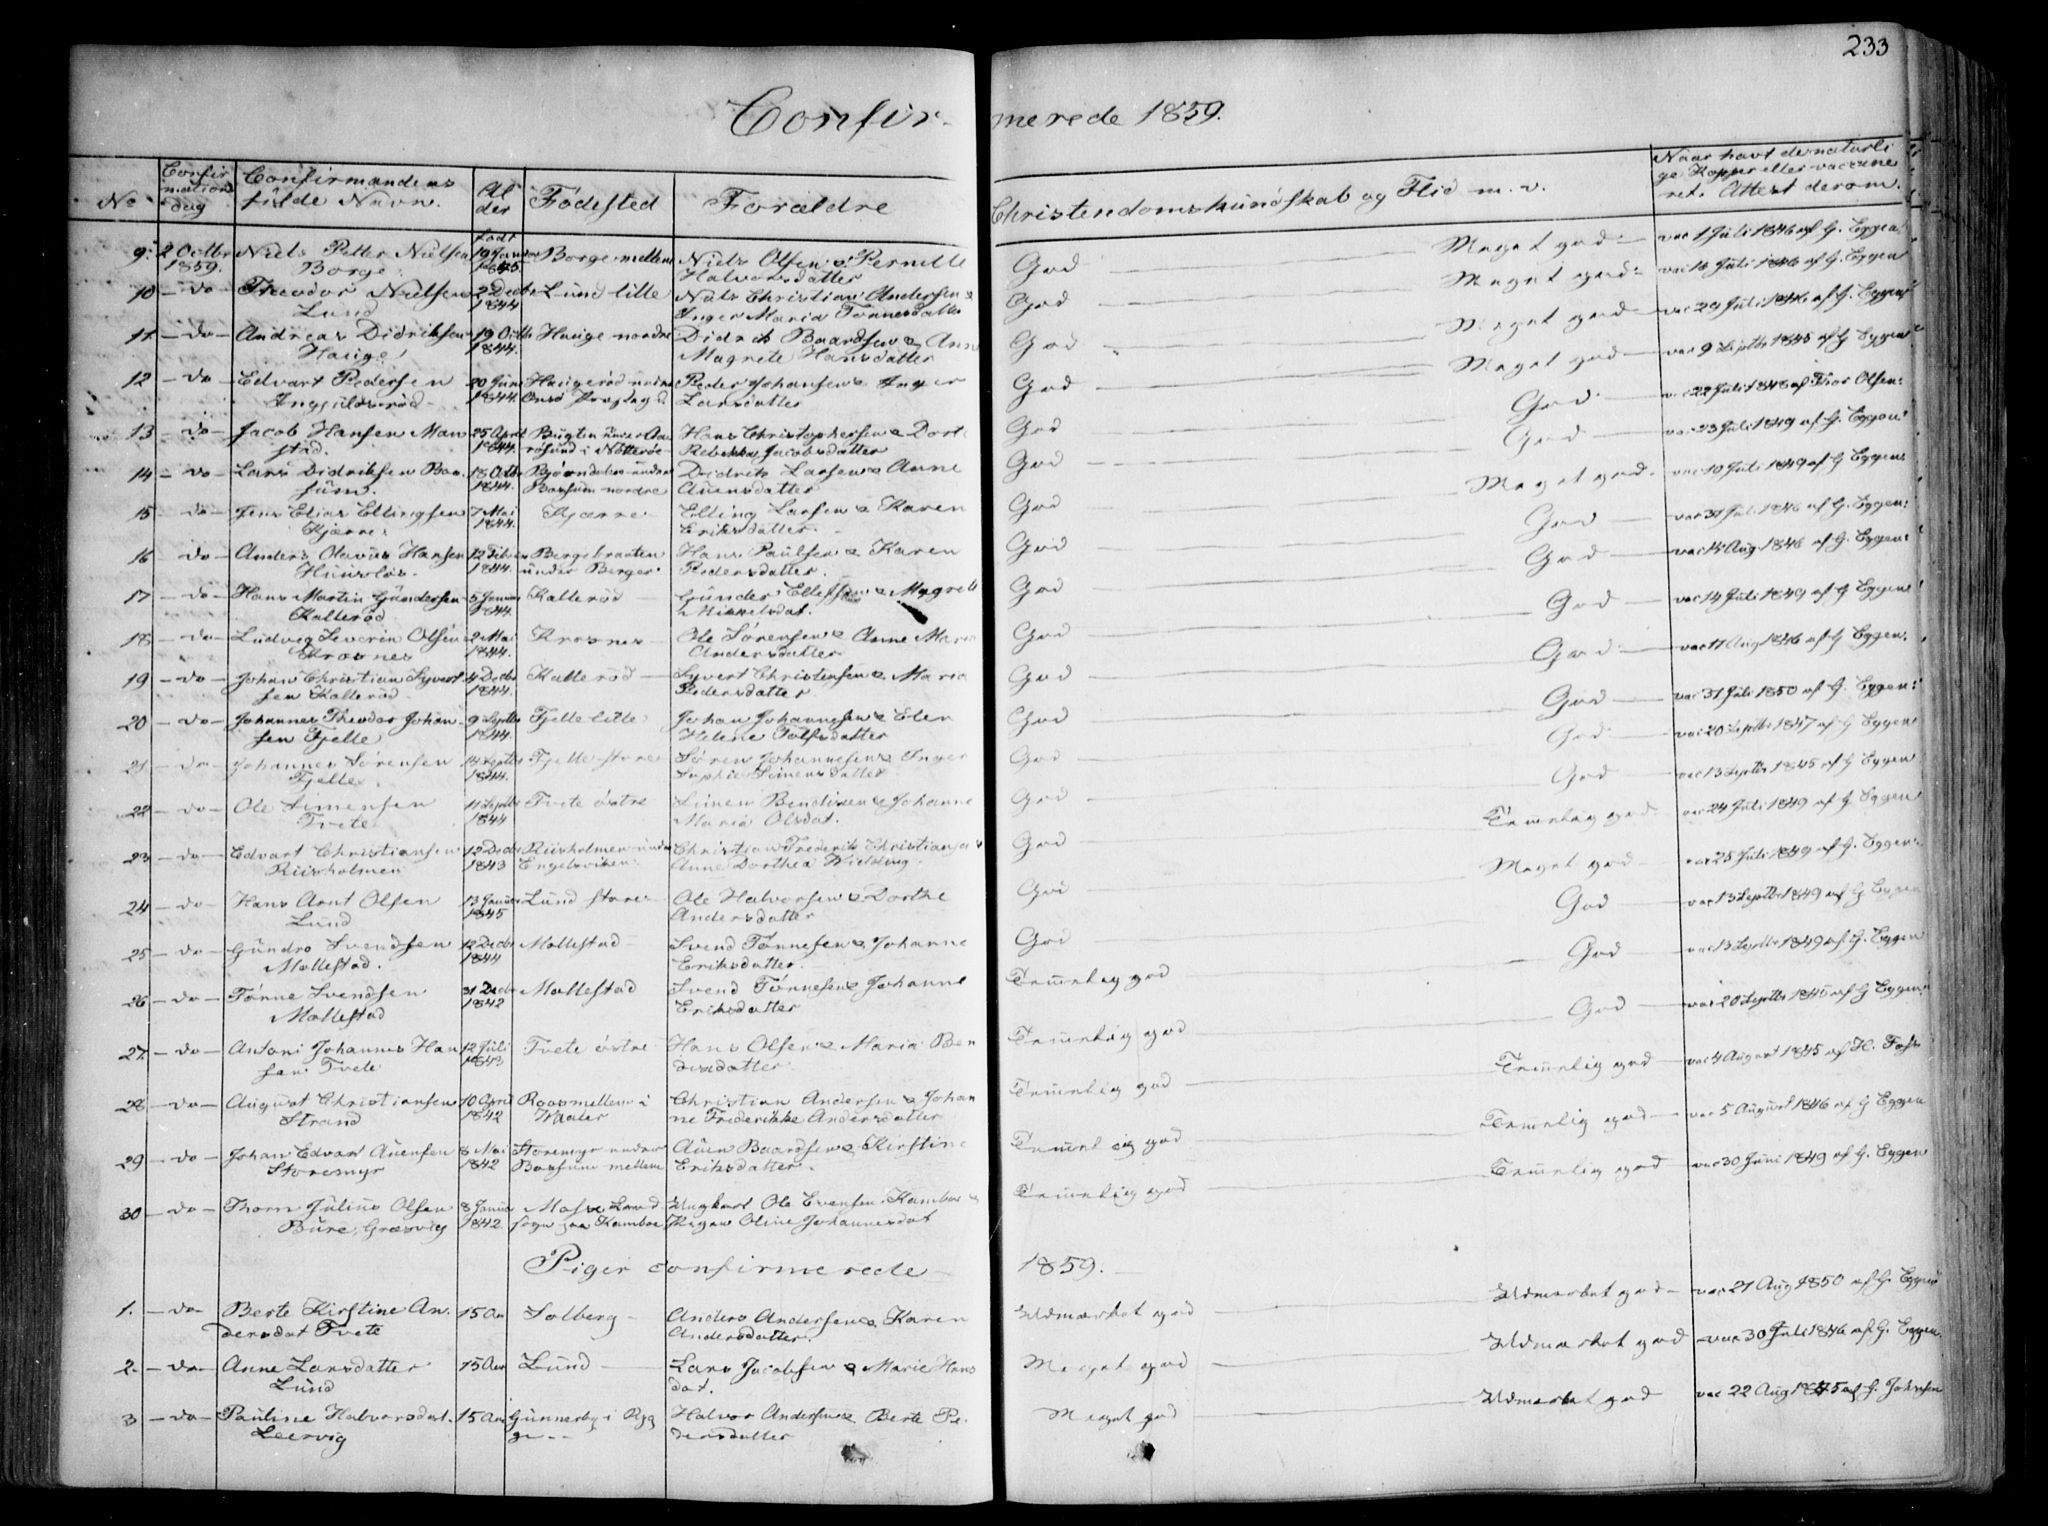 233
Confirmerede 1859.
No Confirmations dag Confirmandens fulde Navn. Alder Fødested Forældre Christendomskundskab og Flid m. v. Naar havt de naturlige Kopper eller vaccineret. Attest derom.
9. 2 Octbr Niels Petter Nielsen født 19 Januar Borge mellem Niels Olsen & Pernelle God Meget god vac 1 Juli 1846 af G. Eggen
1859. Borge. 1845. Halvorsdatter
10 do Theodor Nielsen 2 Decbr Lund lille Niels Christian Andersen & God Meget god vac 16 Juli 1846 af G. Eggen
Lund 1844 Inger Maria Tønnesdatter
11. do Andreas Didriksen 19 Octb Hauge nordre Didrik Baardsen & Anne God Meget god vac 29 Juli 1846 af G. Eggen
Hauge 1844. Magrete Hansdatter
12 do Edvart Pedersen 20 Juni Haugerød Peder Johansen & Inger God Meget god vac 9 Septbr 1845 af G. Eggen
1844. Larsdatter
13 do Jacob Hansen Man 25 April Bugten under Hans Christophersen & Dort God God vac 22 Juli 1848 af Thor Olsen
stad. 1844. i Nøtterøe Rebekka Jacobsdatter
14 do Lars Didriksen Bos 18 Octbr Bjørndalen under Didrik Larsen & Anne God God vac 23 Juli 1849 af G. Eggen
sum. 1844. Bossum nordre Auensdatter
15 do Jens Elias Ellingsen 7 Mai Kjærre Elling Larsen & Karen God Meget god vac 10 Juli 1849 af G. Eggen
Kjærre. 1844. Eriksdatter
16 do Anders Olavus Hansen 12 Febr Bergebraaten Hans Paulsen & Karen God God vac 31 Juli 1846 af G. Eggen
Huusløs. 1844. under Berger Pedersdatter
17 do Hans Martin Gundersen 5 Januar Kallerød Gunder Ellefsen & Magrete God God vac 14 Aug 1846 af G. Eggen
Kallerød 1844. Mikkelsdat.
18 do Ludvig Severin Olsen 2 Mai Krosnes Ole Sørensen & Anne Maria God God vac 14 Juli 1849 af G. Eggen
Krosnes 1844. Andersdatter
19 do Johan Christian Syvert 4 Decbr Kallerød Syvert Christensen & Maria God God vac 17 Aug 1846 af G. Eggen.
sen Kallerød 1844. Pedersdatter
20 do Johannes Theodor Johan 9 Septbr Fjelle lille Johan Johannesen & Elen God God vac 31 Juli 1850 af G. Eggen
sen Fjelle 1844. Helene Tolfsdatter
21 do Johannes Sørensen 14 Septbr Fjelle store Søren Johannesen & Inger God God vac 20 Septbr 1847 af G. Eggen
Fjelle. 1844. Sophie Simensdatter
22 do Ole Simensen 11 Septbr Tvete østre Simen Bendixen & Johanne God God vac 13 Septbr 1845 af G. Eggen
Tvete 1844 Maria Olsdat.
23 do Edvart Christiansen 12 Decbr Riisholmen under Christian Frederik Christiansen & God Temmelig god vac 24 Juli 1849 af G. Eggen
Riisholmen 1843 Engelsviken Anne Dorthea Widding
24 do Hans Arnt Olsen 13 Januar Lund store Ole Halvorsen & Dorthe God Meget god vac 25 Juli 1849 af G. Eggen
Lund 1845 Andersdatter
25 do Gundro Svendsen 12 Decbr Mollestad Svend Tønnesen & Johanne God God vac 13 Septbr 1849 af G. Eggen
Mollestad. 1844 Eriksdatter.
26 do Tønne Svendsen 31 Decbr Mollestad Svend Tønnesen & Johanne Temmelig god God vac 13 Septbr 1849 af G. Eggen
Mollestad 1842 Eriksdatter
27. do Antoni Johannes Han 12 Juli Tvete østre Hans Olsen & Maria Ben Temmelig god God vac 20 Septbr 1845 af G. Eggen
sen. Tvete 1843 dixdatter
28 do August Christiansen 10 April Roosmellem i Christian Andersen & Johan Temmelig god Temmelig god vac 4 August 1845 af H.
Strand 1842 Waaler ne Frederikke Andersdatter
29 do Johan Edvart Auensen 8 Mai Storemyr under Auen Baardsen & Kirstine Temmelig god Temmelig god vac 5 August 1846 af G. Eggen
Storemyr 1842 Bossum mellem Eriksdatter.
30 do Thorn Julius Olsen 8 Januar Moss Land Ungkarl Ole Evensen Kamboe & Temmelig god Temmelig god vac 30 Juni 1849 af G. Eggen
Bure, Græsvig 1842 sogn paa Kamboe Pigen Oline Johannesdat
Piger confirmerede 1859.
1. do Berte Kirstine An 15 Aar Solberg Anders Andersen & Karen Udmærket god Udmærket god vac 21 Aug 1850 af G. Eggen
dersdat Tvete Andersdatter.
2. do Anne Larsdatter 15 Aar Lund Lars Jacobsen & Marie Hans Meget god Udmærket god vac 30 Juli 1846 af G. Eggen.
Lund dat.
3 do Pauline Halvorsdat. 15 Aar Gunnerby i Ryg Halvor Andersen & Berte Pe Meget god Udmærket god vac 22 Aug 1845 af G. Johnsen
Leervig ge dersdatter